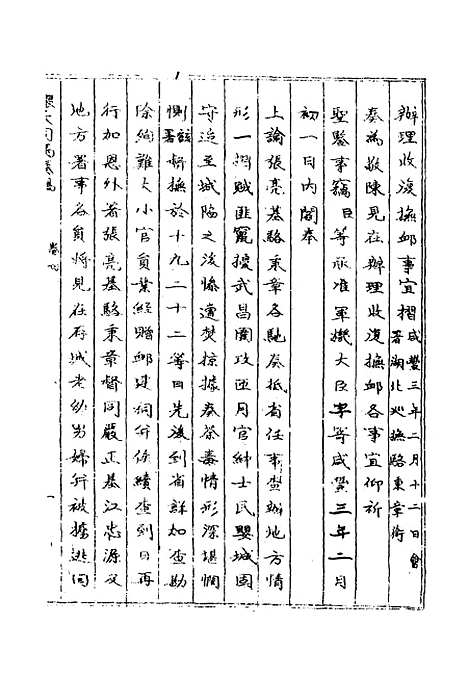 辦理收復撫卹事宜摺 咸豐三年二月十二日會
署湖北巡撫駱秉章銜
奏為敬陳見在辦理收復撫卹各事宜仰祈
聖鑒事竊臣等承准軍機大臣字寄咸豐三年二月
初一日內閣奉
上諭張亮基駱秉章各馳奏抵省任事查辦地方情
形一摺賊匪竄擾武昌圍攻匝月官紳士民嬰城固
守迨至城陷之後慘遭焚掠據奏荼毒情形深堪憫
惻該署督撫於十九二十二等日先後到省鮮加查勘
除絢難大小官員業經贈卹建祠併俟續查到日再
行加恩外著張亮基駱秉章督同嚴正基江忠源及
地方著事各員將見在存城老幼男婦併被擄逃回
卷四
一